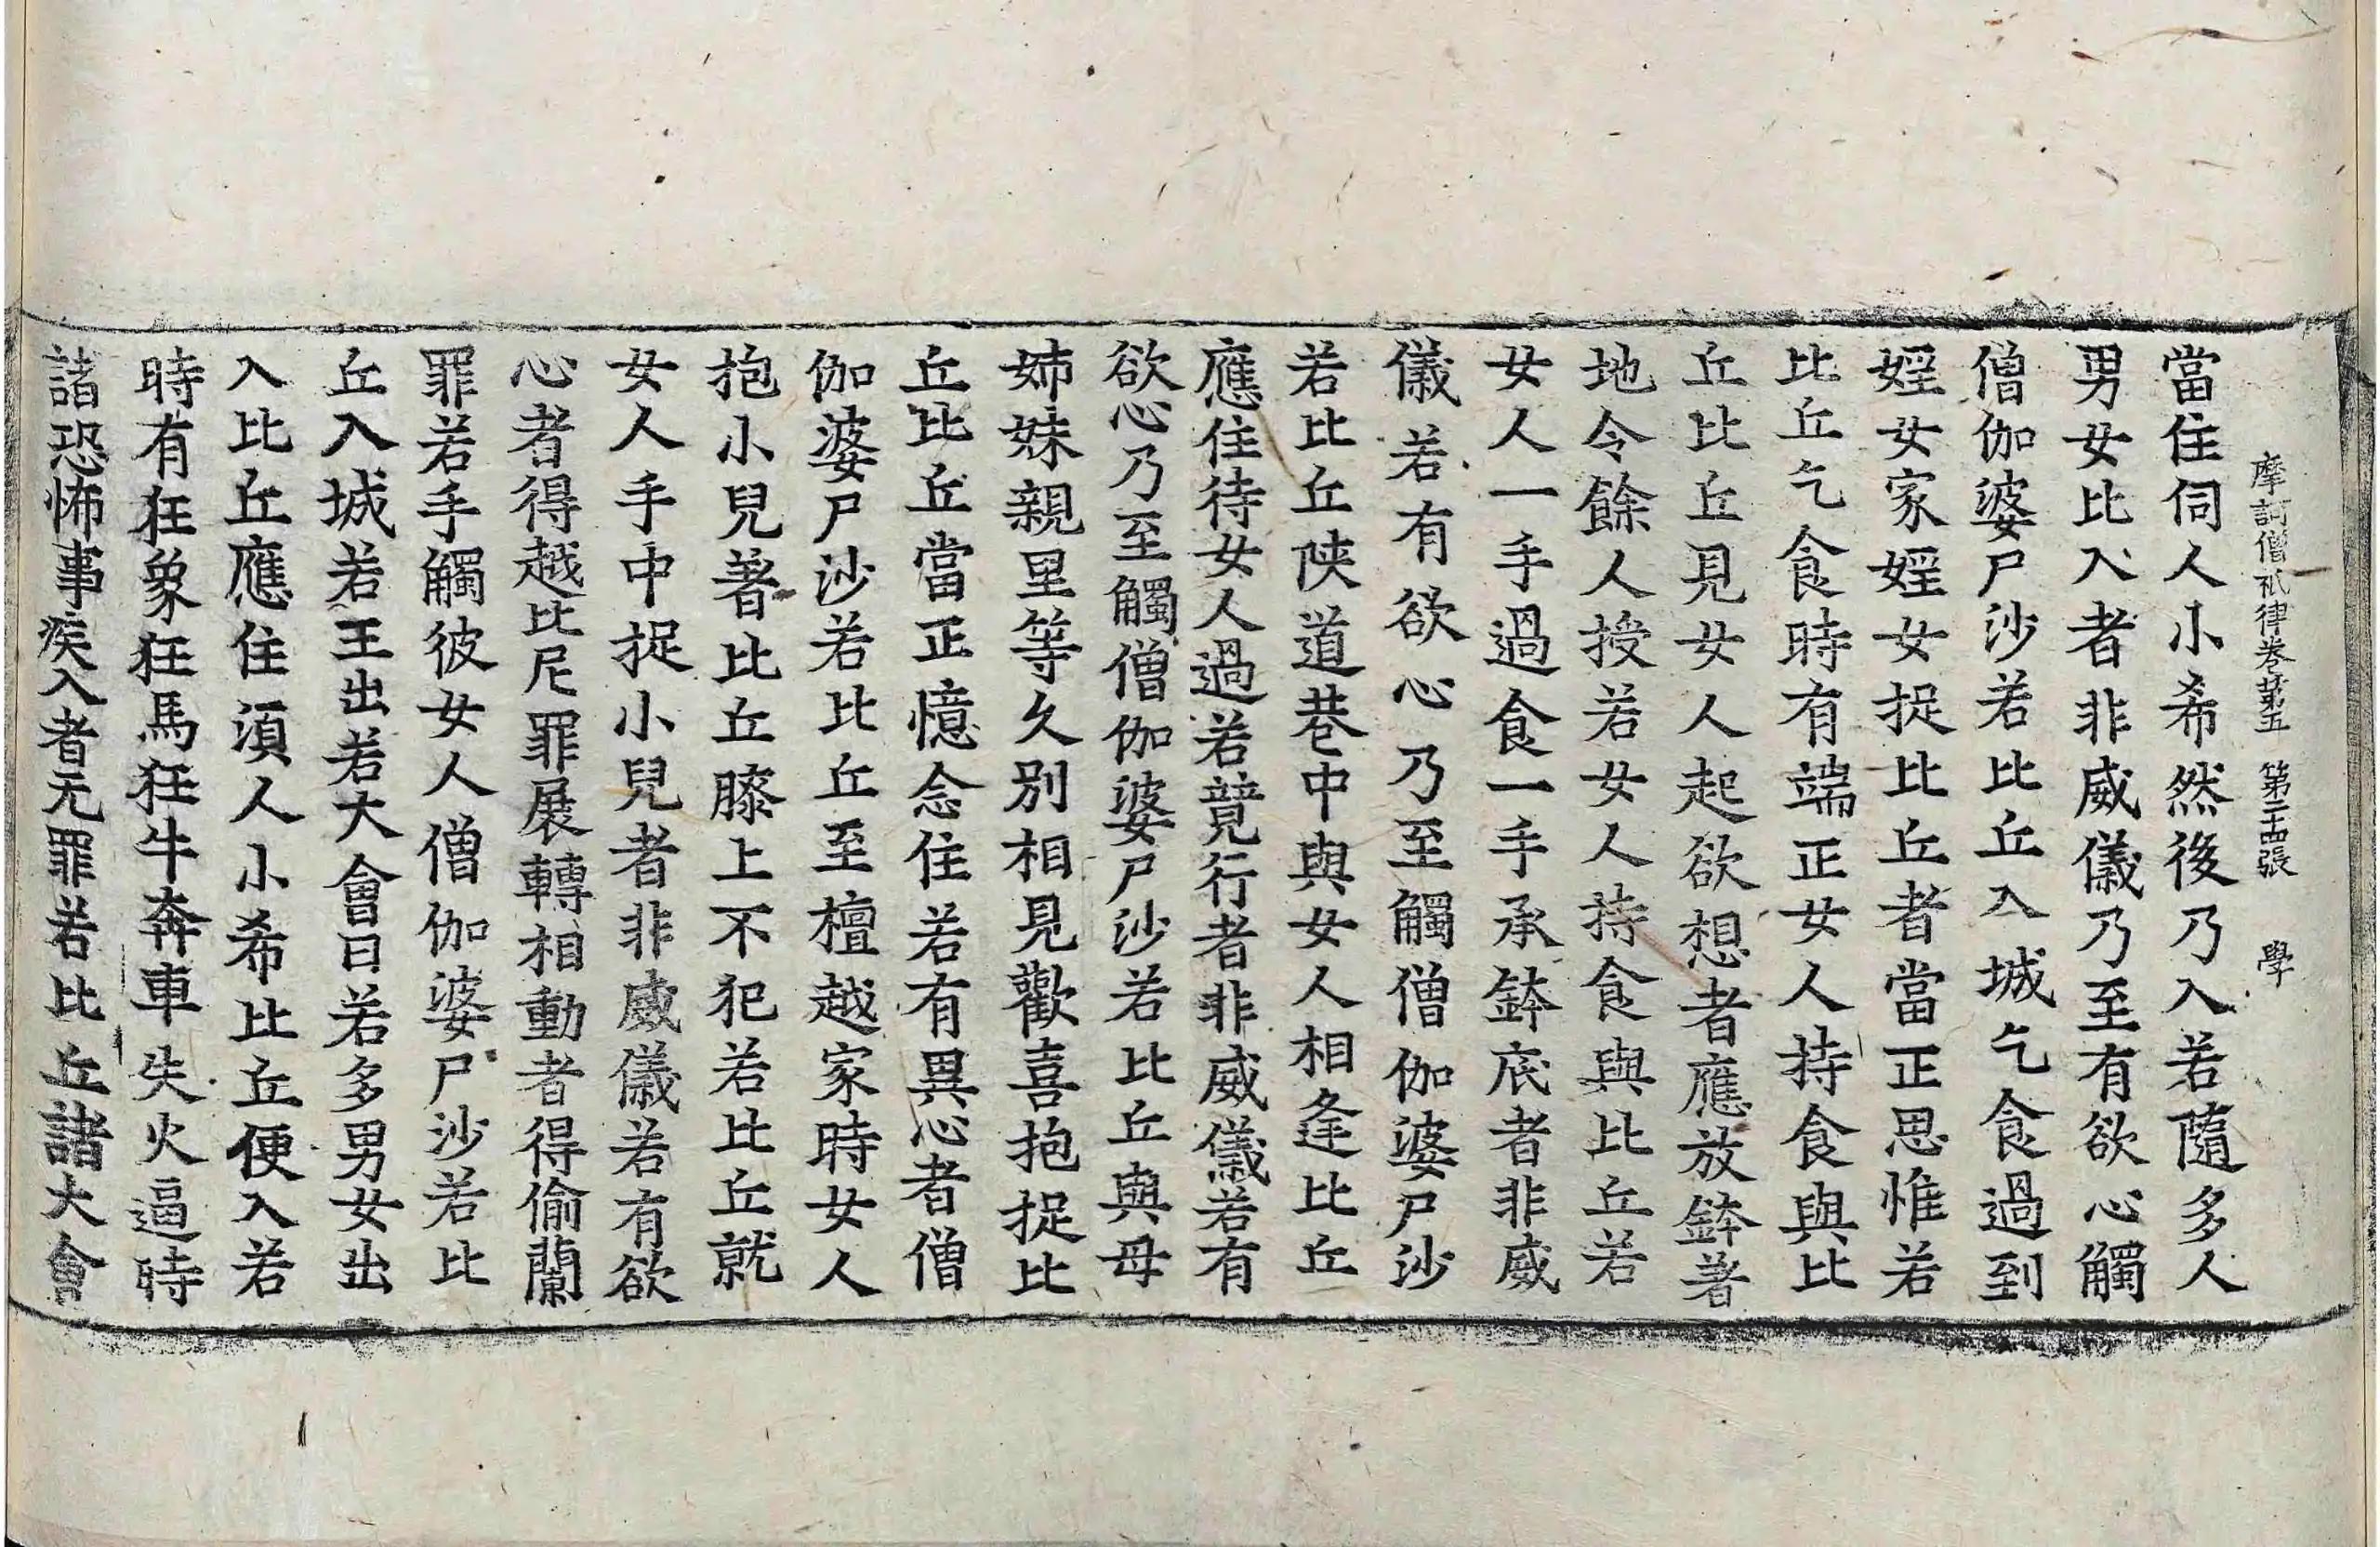 摩訶僧祇律卷第五 第二十四張 學
當住伺人小希然後乃入若隨多人
男女比入者非威儀乃至有欲心觸
僧伽婆尸沙若比丘入城乞食過到
婬女家婬女捉比丘者當正思惟若
比丘乞食時有端正女人持食與比
丘比丘見女人起欲想者應放鉢著
地令餘人授若女人持食與比丘若
女人一手過食一手承鉢底者非威
儀若有欲心乃至觸僧伽婆尸沙
若比丘陜道巷中與女人相逢比丘
應住待女人過若竟行者非威儀若有
欲心乃至觸僧伽婆尸沙若比丘與母
姊妹親里等久別相見歡喜抱捉比
丘比丘當正憶念住若有異心者僧
伽婆尸沙若比丘至檀越家時女人
抱小兒著比丘膝上不犯若比丘就
女人手中捉小兒者非威儀若有欲
心者得越比尼罪展轉相動者得偷蘭
罪若手觸彼女人僧伽婆尸沙若比
丘入城若王出若大會日若多男女出
入比丘應住須人小希比丘便入若
時有狂象狂馬狂牛奔車失火逼時
諸恐怖事疾入者无罪若比丘諸大會